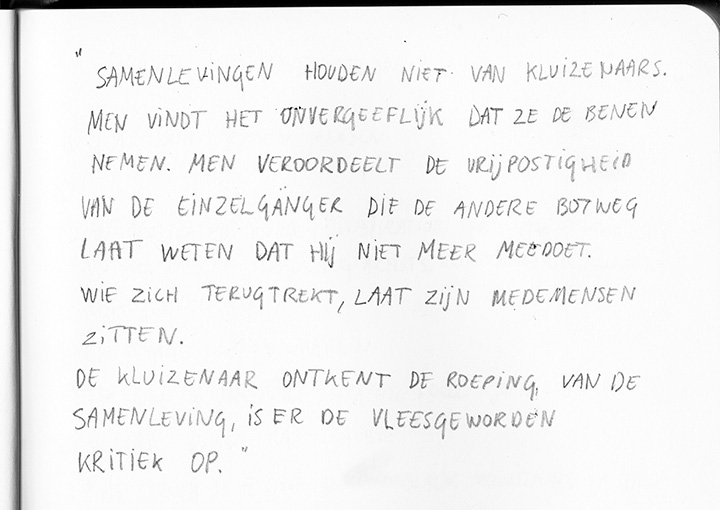 " SAMENLEVINGEN HOUDEN NIET VAN KLUIZENAARS.
MEN VINDT HET ONVERGEEFLIJK DAT ZE DE BENEN
NEMEN. MEN VEROORDEELT DE VRIJPOSTIGHEID
VAN DE EINZELGÄNGER DIE DE ANDERE BOTWEG
LAAT WETEN DAT HIJ NIET MEER MEEDOET.
WIE ZICH TERUGTREKT, LAAT ZIJN MEDEMENSEN
ZITTEN.
DE KLUIZENAAR ONTKENT DE ROEPING, VAN DE
SAMENLEVING, IS ER DE VLEESGEWORDEN
KRITIEK OP. "